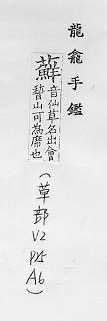 龍龕手鑑
蘚
音仙草名出會
稽山可為席也
(草部
V2
P15
A6)